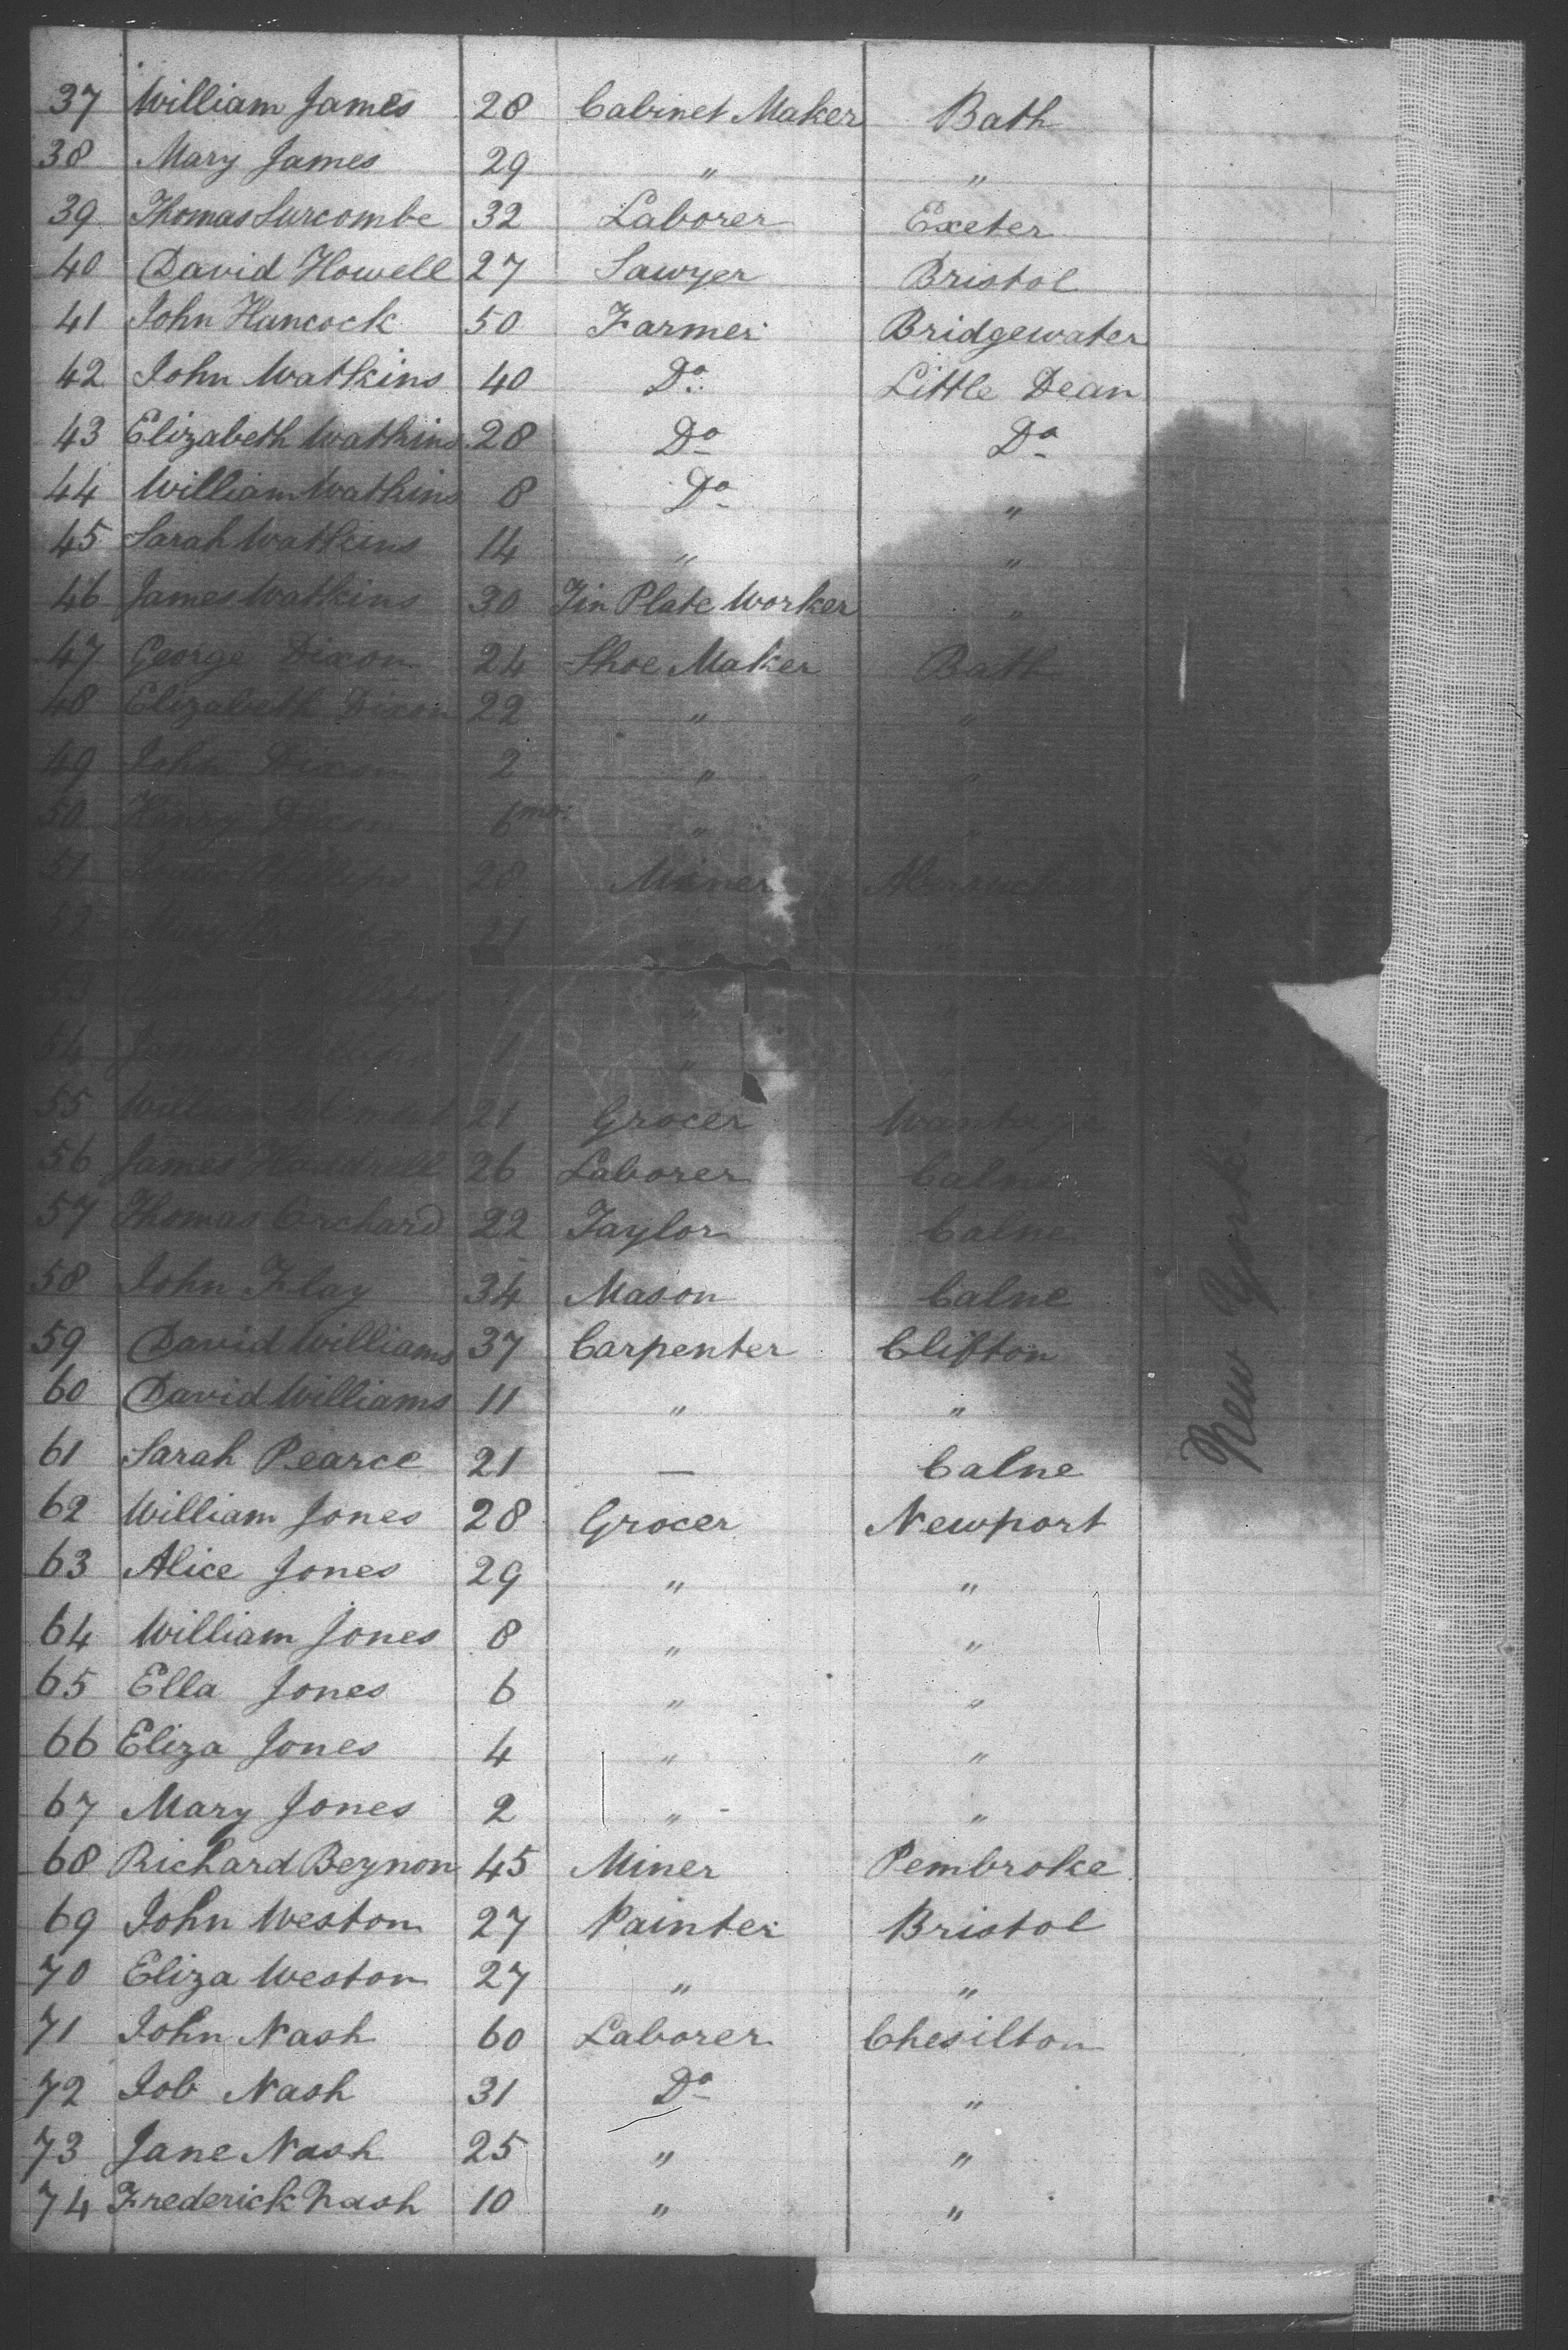 37 William James 28 Cabinet Maker Bath
38 Mary James 29 " "
39 Thomas Surcombe 32 Laborer Exeter
40 David Howell 27 Sawyer Bristol
41 John Hancock 50 Farmer Bridgewater
42 John Watkins 40 Do Little Dean
43 Elizabeth Watkins 28 Do Do
44 William Watkins 8 Do "
45 Sarah Watkins 14 " "
46 James Watkins 30 Tin Plate Worker "
47 George Dixon 24 Shoe Maker Bath
48 Elizabeth Dixon 22 " "
49 John Dixon 2 " "
50 Henry Dixon 6 mo: " "
51 Phillips 28 Miner
52 Mary 21 "
53 " "
54 James 1 " "
55 William 21 Grocer
56 James 26 Laborer Calne
57 Thomas Orchard 22 Taylor Calne
58 John Flay 34 Mason Calne
59 David Williams 37 Carpenter Clifton
60 David Williams 11 " "
61 Sarah Pearce 21 — Calne
62 William Jones 28 Grocer Newport
63 Alice Jones 29 " "
64 William Jones 8 " "
65 Ella Jones 6 " "
66 Eliza Jones 4 " "
67 Mary Jones 2 " "
68 Richard Beynon 45 Miner Pembroke
69 John Weston 27 Painter Bristol
70 Eliza Weston 27 " "
71 John Nash 60 Laborer Chesilton
72 Job Nash 31 Do "
73 Jane Nash 25 " "
74 Frederick Nash 10 " "
New York